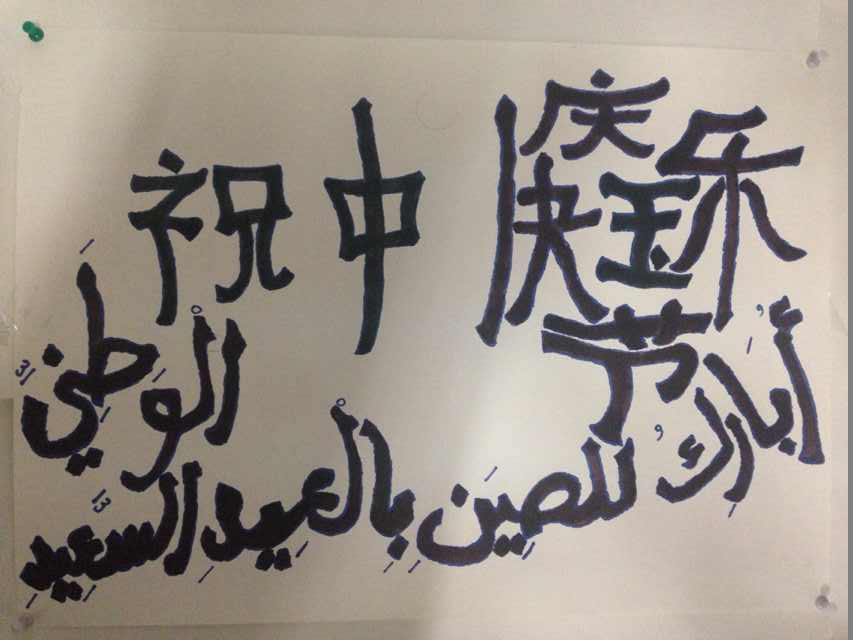 祝中 国庆节快乐
أُبَارِكُ للصِينَ بِالْعِيدِ الْوَطَنِيِّ السَّعِيدِ